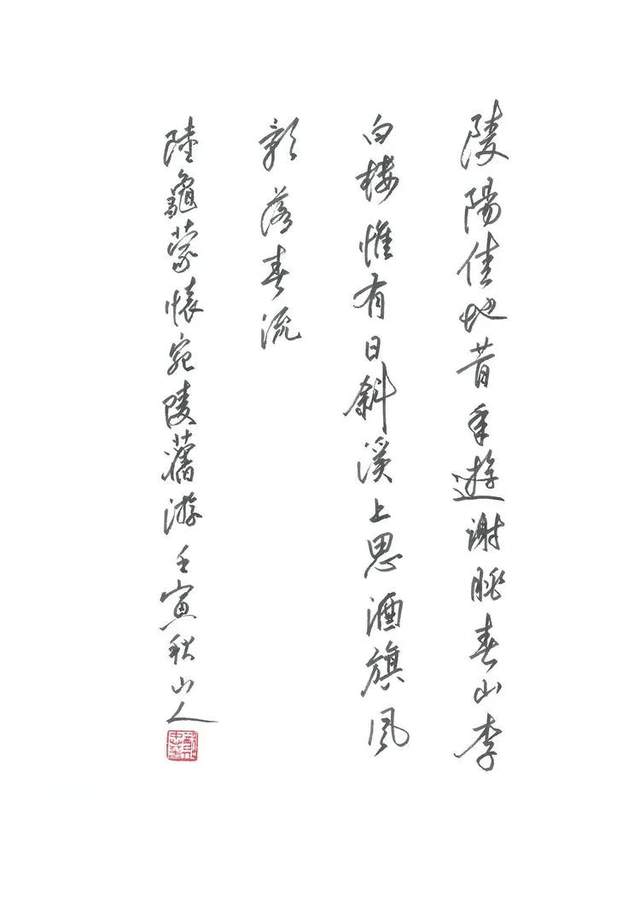 陵陽佳地昔年遊謝朓春山李
白樓惟有日斜溪上思酒旗風
影落春流
陸龜蒙懷宛陵舊游壬寅秋山人